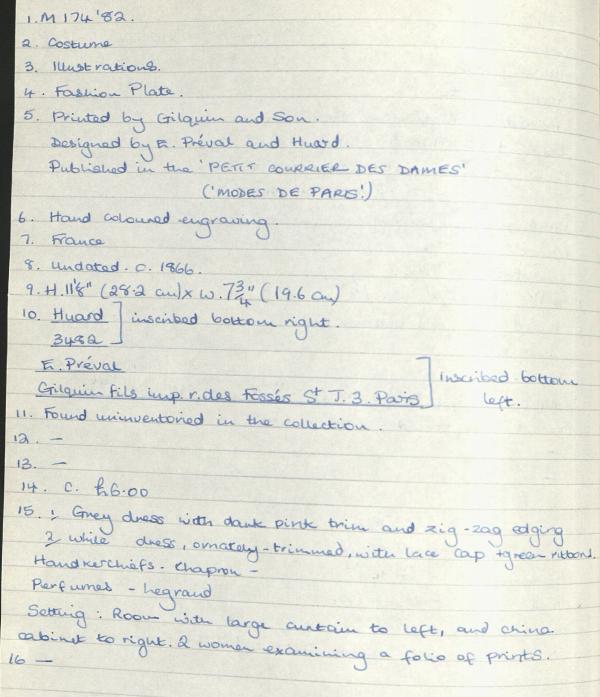 1. M 174 '82.
2. Costume
3. Illustrations.
4. Fashion Plate.
5. Printed by Gilquin and Son.
Designed by E. Préval and Huard.
Published in the 'PETIT COURRIER DES DAMES'
('MODES DE PARIS'.)
6. Hand coloured engraving.
7. France
8. Undated. c. 1866.
9. H. 11⅛" (28.2 cm) x W. 7¾" (19.6 cm)
10. Huard ] inscribed bottom right.
3482
E. Préval
Gilquin fils imp. r. des Fossés St J. 3. Paris ] inscribed bottom left.
11. Found uninventoried in the collection.
12. —
13. —
14. c. £6.00
15. 1/ Grey dress with dark pink trim and zig-zag edging
2/ white dress, ornately-trimmed, with lace cap + green ribbons.
Handkerchiefs - Chapron -
Perfumes - Legrand
Setting: Room with large curtain to left, and china
cabinet to right. 2 women examining a folio of prints.
16 —